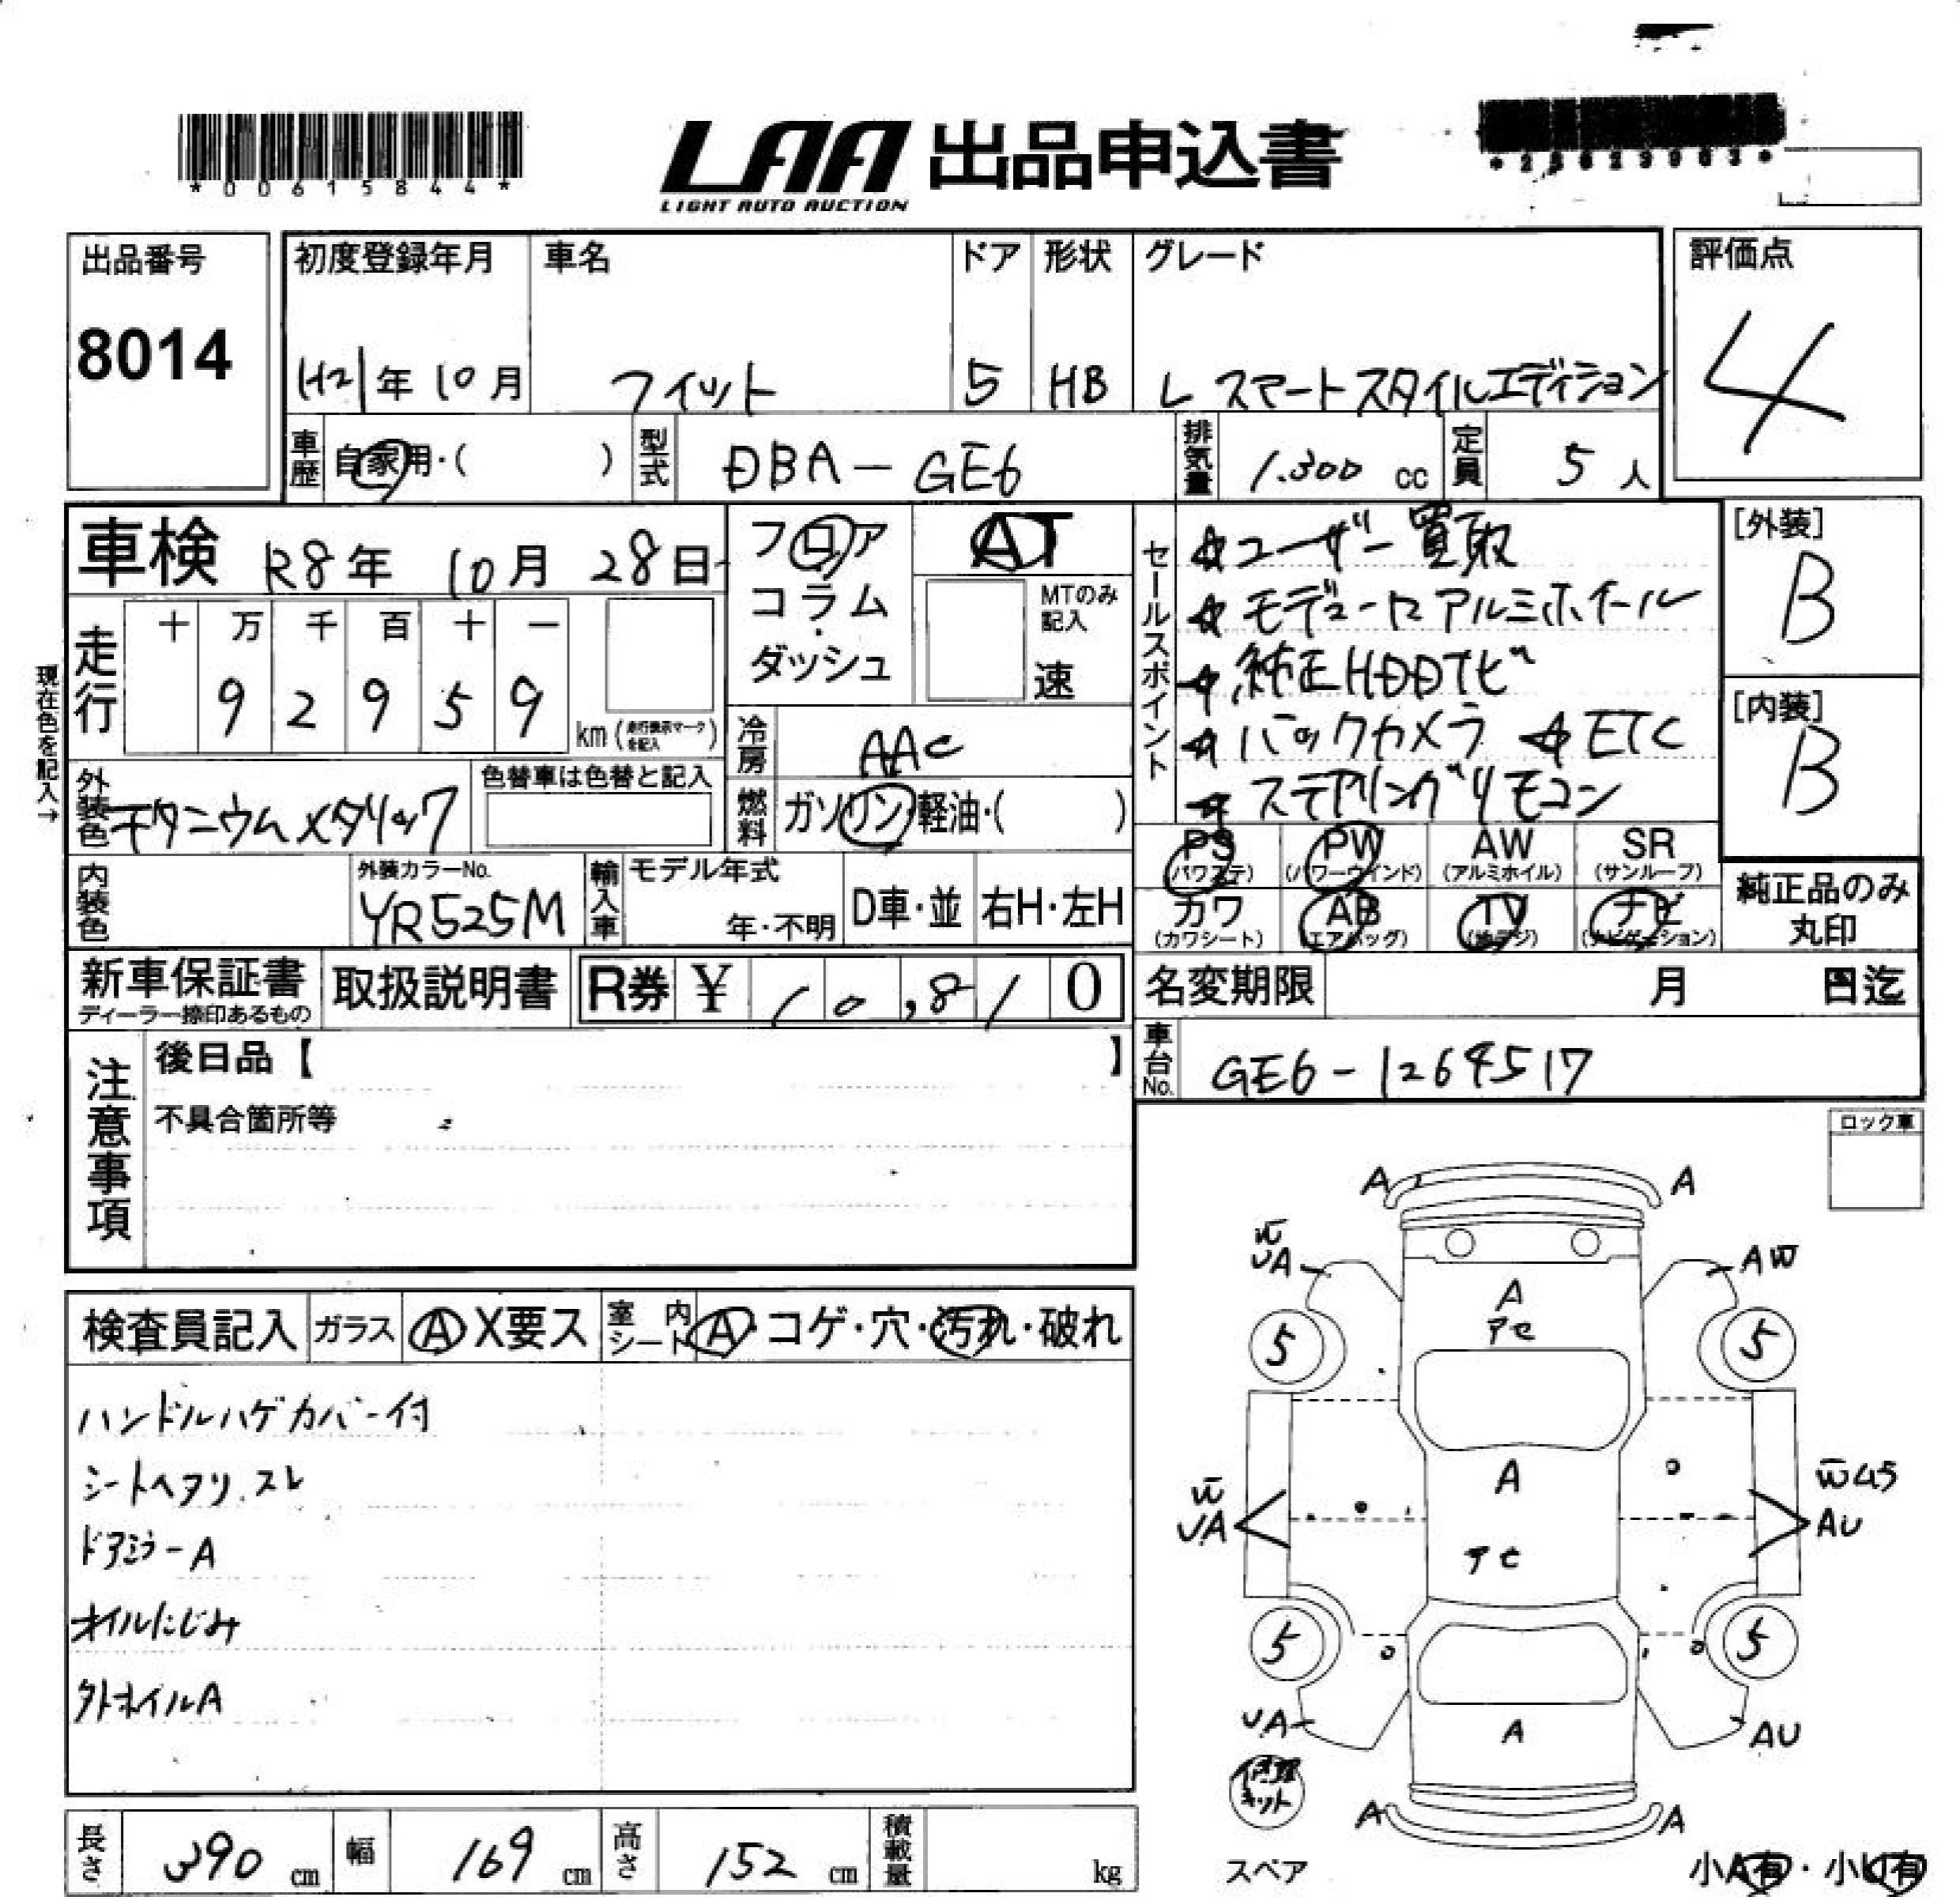 *00615844*
LAA 出品申込書
LIGHT AUTO AUCTION
出品番号
8014
初度登録年月
H21年10月
車名
フィット
ドア
5
形状
HB
グレード
L スマートスタイルエディション
評価点
4
車歴
自家用・( )
型式
DBA-GE6
排気量
1.300 cc
定員
5人
車検 R8年 10月 28日
フロア
コラム
・
ダッシュ
AT
MTのみ
記入
速
セールスポイント
☆ユーザー買取
☆モデューロアルミホイール
☆純正HDDナビ
☆バックカメラ ☆ETC
☆ステアリングリモコン
[外装]
B
[内装]
B
現在色を記入→
走行
十 万 千 百 十 一
9 2 9 5 9
km(走行表示マークを記入)
冷房
AAC
燃料
ガソリン・軽油・( )
外装色
チタニウムメタリック
色替車は色替と記入
内装色
外装カラーNo.
YR525M
輸入車
モデル年式
年・不明
D車・並
右H・左H
PS
(パワステ)
PW
(パワーウインド)
AW
(アルミホイル)
SR
(サンルーフ)
カワ
(カワシート)
AB
(エアバッグ)
TV
(地デジ)
ナビ
(ナビゲーション)
純正品のみ
丸印
新車保証書
ディーラー捺印あるもの
取扱説明書
R券 ¥ 10,810
名変期限 月 日迄
車台No.
GE6-1264517
注意事項
後日品【 】
不具合箇所等
ロック車
検査員記入
ガラス
A X要ス
室内シート
A・コゲ・穴・汚れ・破れ
ハンドルハゲカバー付
シートヘタリ.スレ
ドアミラーA
オイルにじみ
外ホイルA
A A
W
UA
AW
A
アセ
5 5
A
W
UA
WU5
AU
アセ
5 5
UA
A
AU
修理
キット
A A
スペア
小A有・小U有
長さ
390 cm
幅
169 cm
高さ
152 cm
積載量
kg